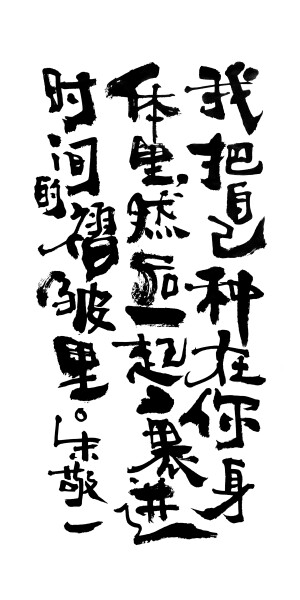 我把自己种在你身
体里,然后一起裹进
时间的褶皱里。
朱敬一